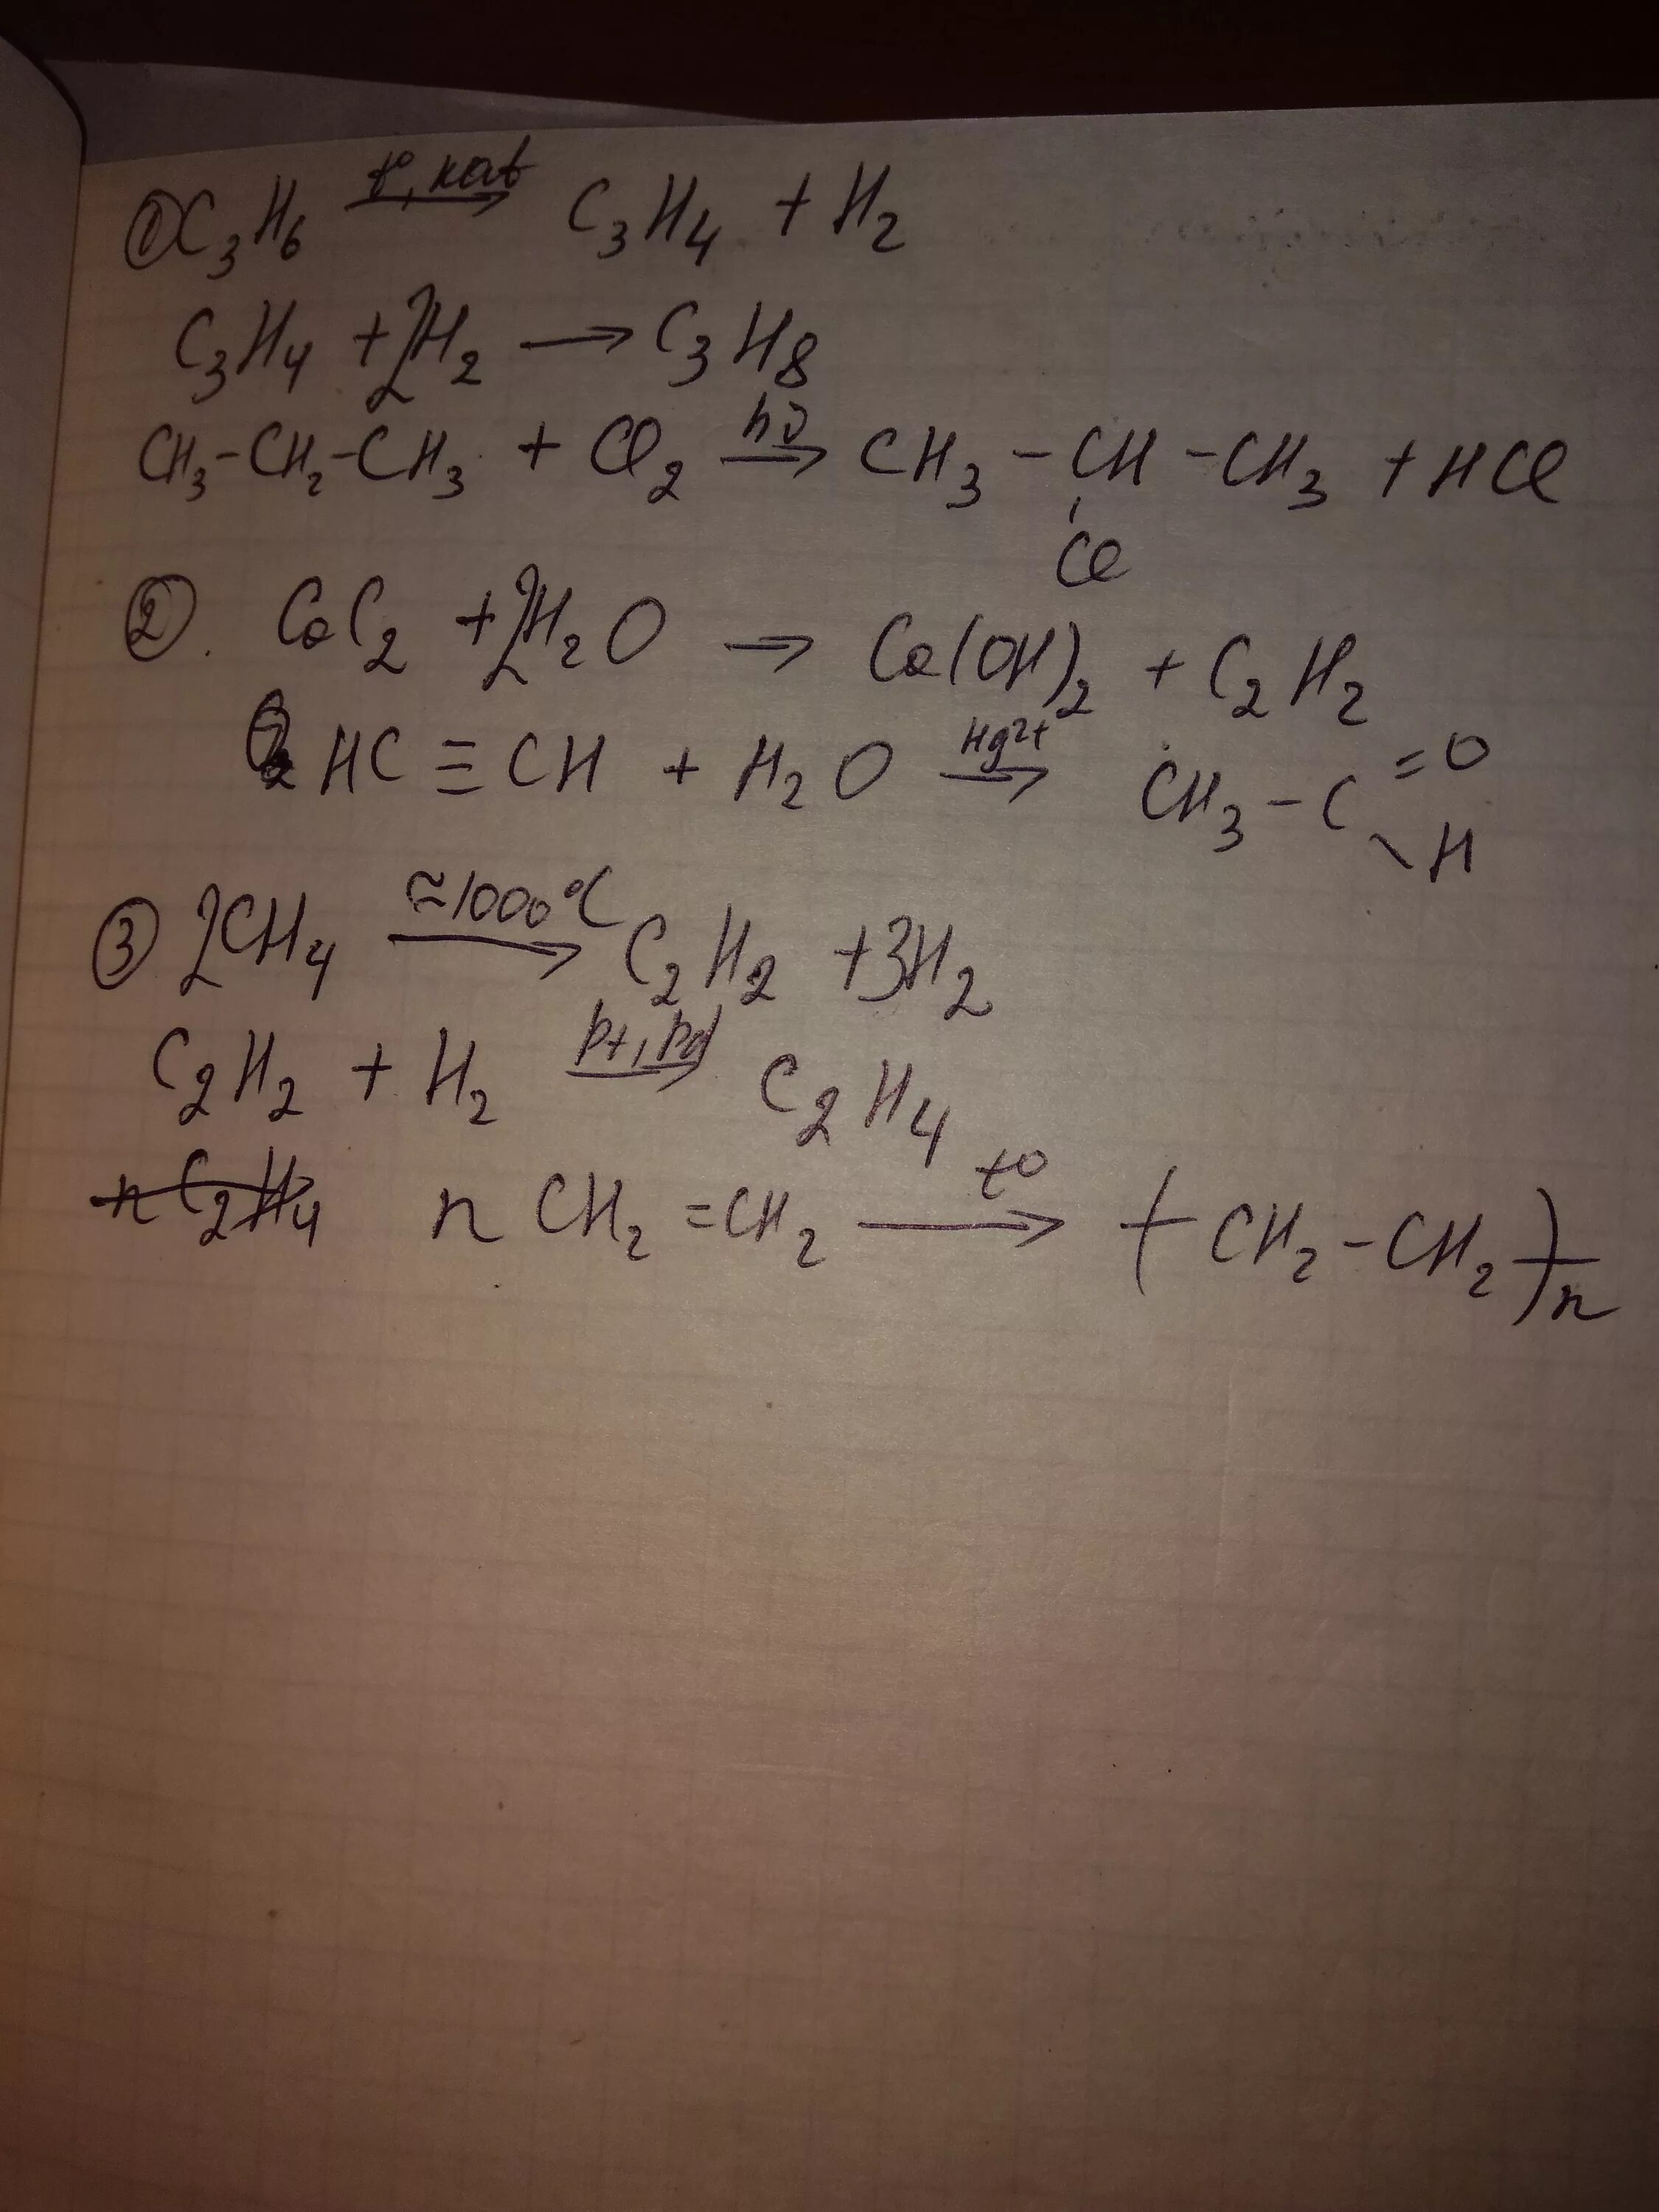 ① C₃H₆ —t°, кат→ C₃H₄ + H₂
C₃H₄ + 2H₂ → C₃H₈
CH₃-CH₂-CH₃ + Cl₂ —hν→ CH₃ - CH - CH₃ + HCl
Cl
②. CaC₂ + 2H₂O → Ca(OH)₂ + C₂H₂
HC ≡ CH + H₂O —Hg²⁺→ CH₃ - C =O \ H
③ 2CH₄ —≈1000°C→ C₂H₂ + 3H₂
C₂H₂ + H₂ —Pt, Pd→ C₂H₄
n C₂H₄ n CH₂ = CH₂ —t°→ (- CH₂ - CH₂ -)n